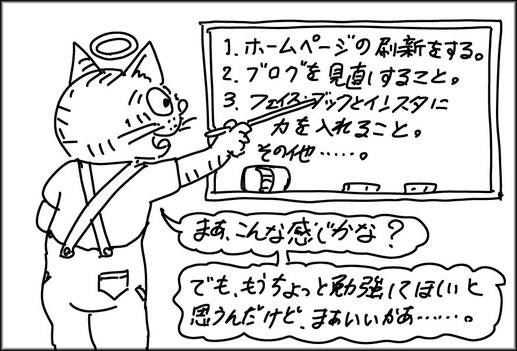 1. ホームページの刷新をする。
2. ブログを見直しすること。
3. フェイスブックとインスタに
力を入れること。
その他……。
まあ、こんな感じかな？
でも、もうちょっと勉強してほしいと
思うんだけど、まあいいかあ……。